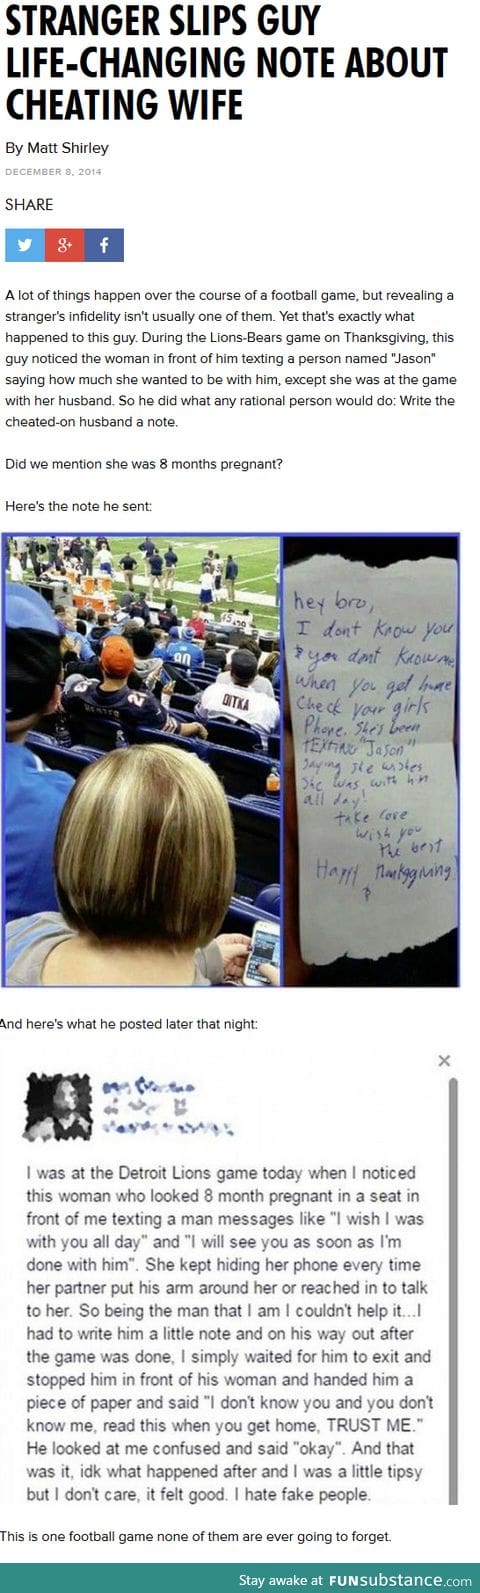 STRANGER SLIPS GUY
LIFE-CHANGING NOTE ABOUT
CHEATING WIFE
By Matt Shirley
DECEMBER 8, 2014
SHARE
8+ f
A lot of things happen over the course of a football game, but revealing a
stranger's infidelity isn't usually one of them. Yet that's exactly what
happened to this guy. During the Lions-Bears game on Thanksgiving, this
guy noticed the woman in front of him texting a person named "Jason"
saying how much she wanted to be with him, except she was at the game
with her husband. So he did what any rational person would do: Write the
cheated-on husband a note.
Did we mention she was 8 months pregnant?
Here's the note he sent:
45
90
DITKA
HESTER
hey bro,
I dont know you
& you dont know me,
when you get home
Check your girls
Phone. She's been
TEXTING "Jason"
Saying she wishes
She was with him
all day!
take care
wish you
the best
Happy Thanksgiving!
And here's what he posted later that night:
×
I was at the Detroit Lions game today when I noticed
this woman who looked 8 month pregnant in a seat in
front of me texting a man messages like "I wish I was
with you all day" and "I will see you as soon as I'm
done with him". She kept hiding her phone every time
her partner put his arm around her or reached in to talk
to her. So being the man that I am I couldn't help it...I
had to write him a little note and on his way out after
the game was done, I simply waited for him to exit and
stopped him in front of his woman and handed him a
piece of paper and said "I don't know you and you don't
know me, read this when you get home, TRUST ME."
He looked at me confused and said "okay". And that
was it, idk what happened after and I was a little tipsy
but I don't care, it felt good. I hate fake people.
This is one football game none of them are ever going to forget.
Stay awake at FUNsubstance.com